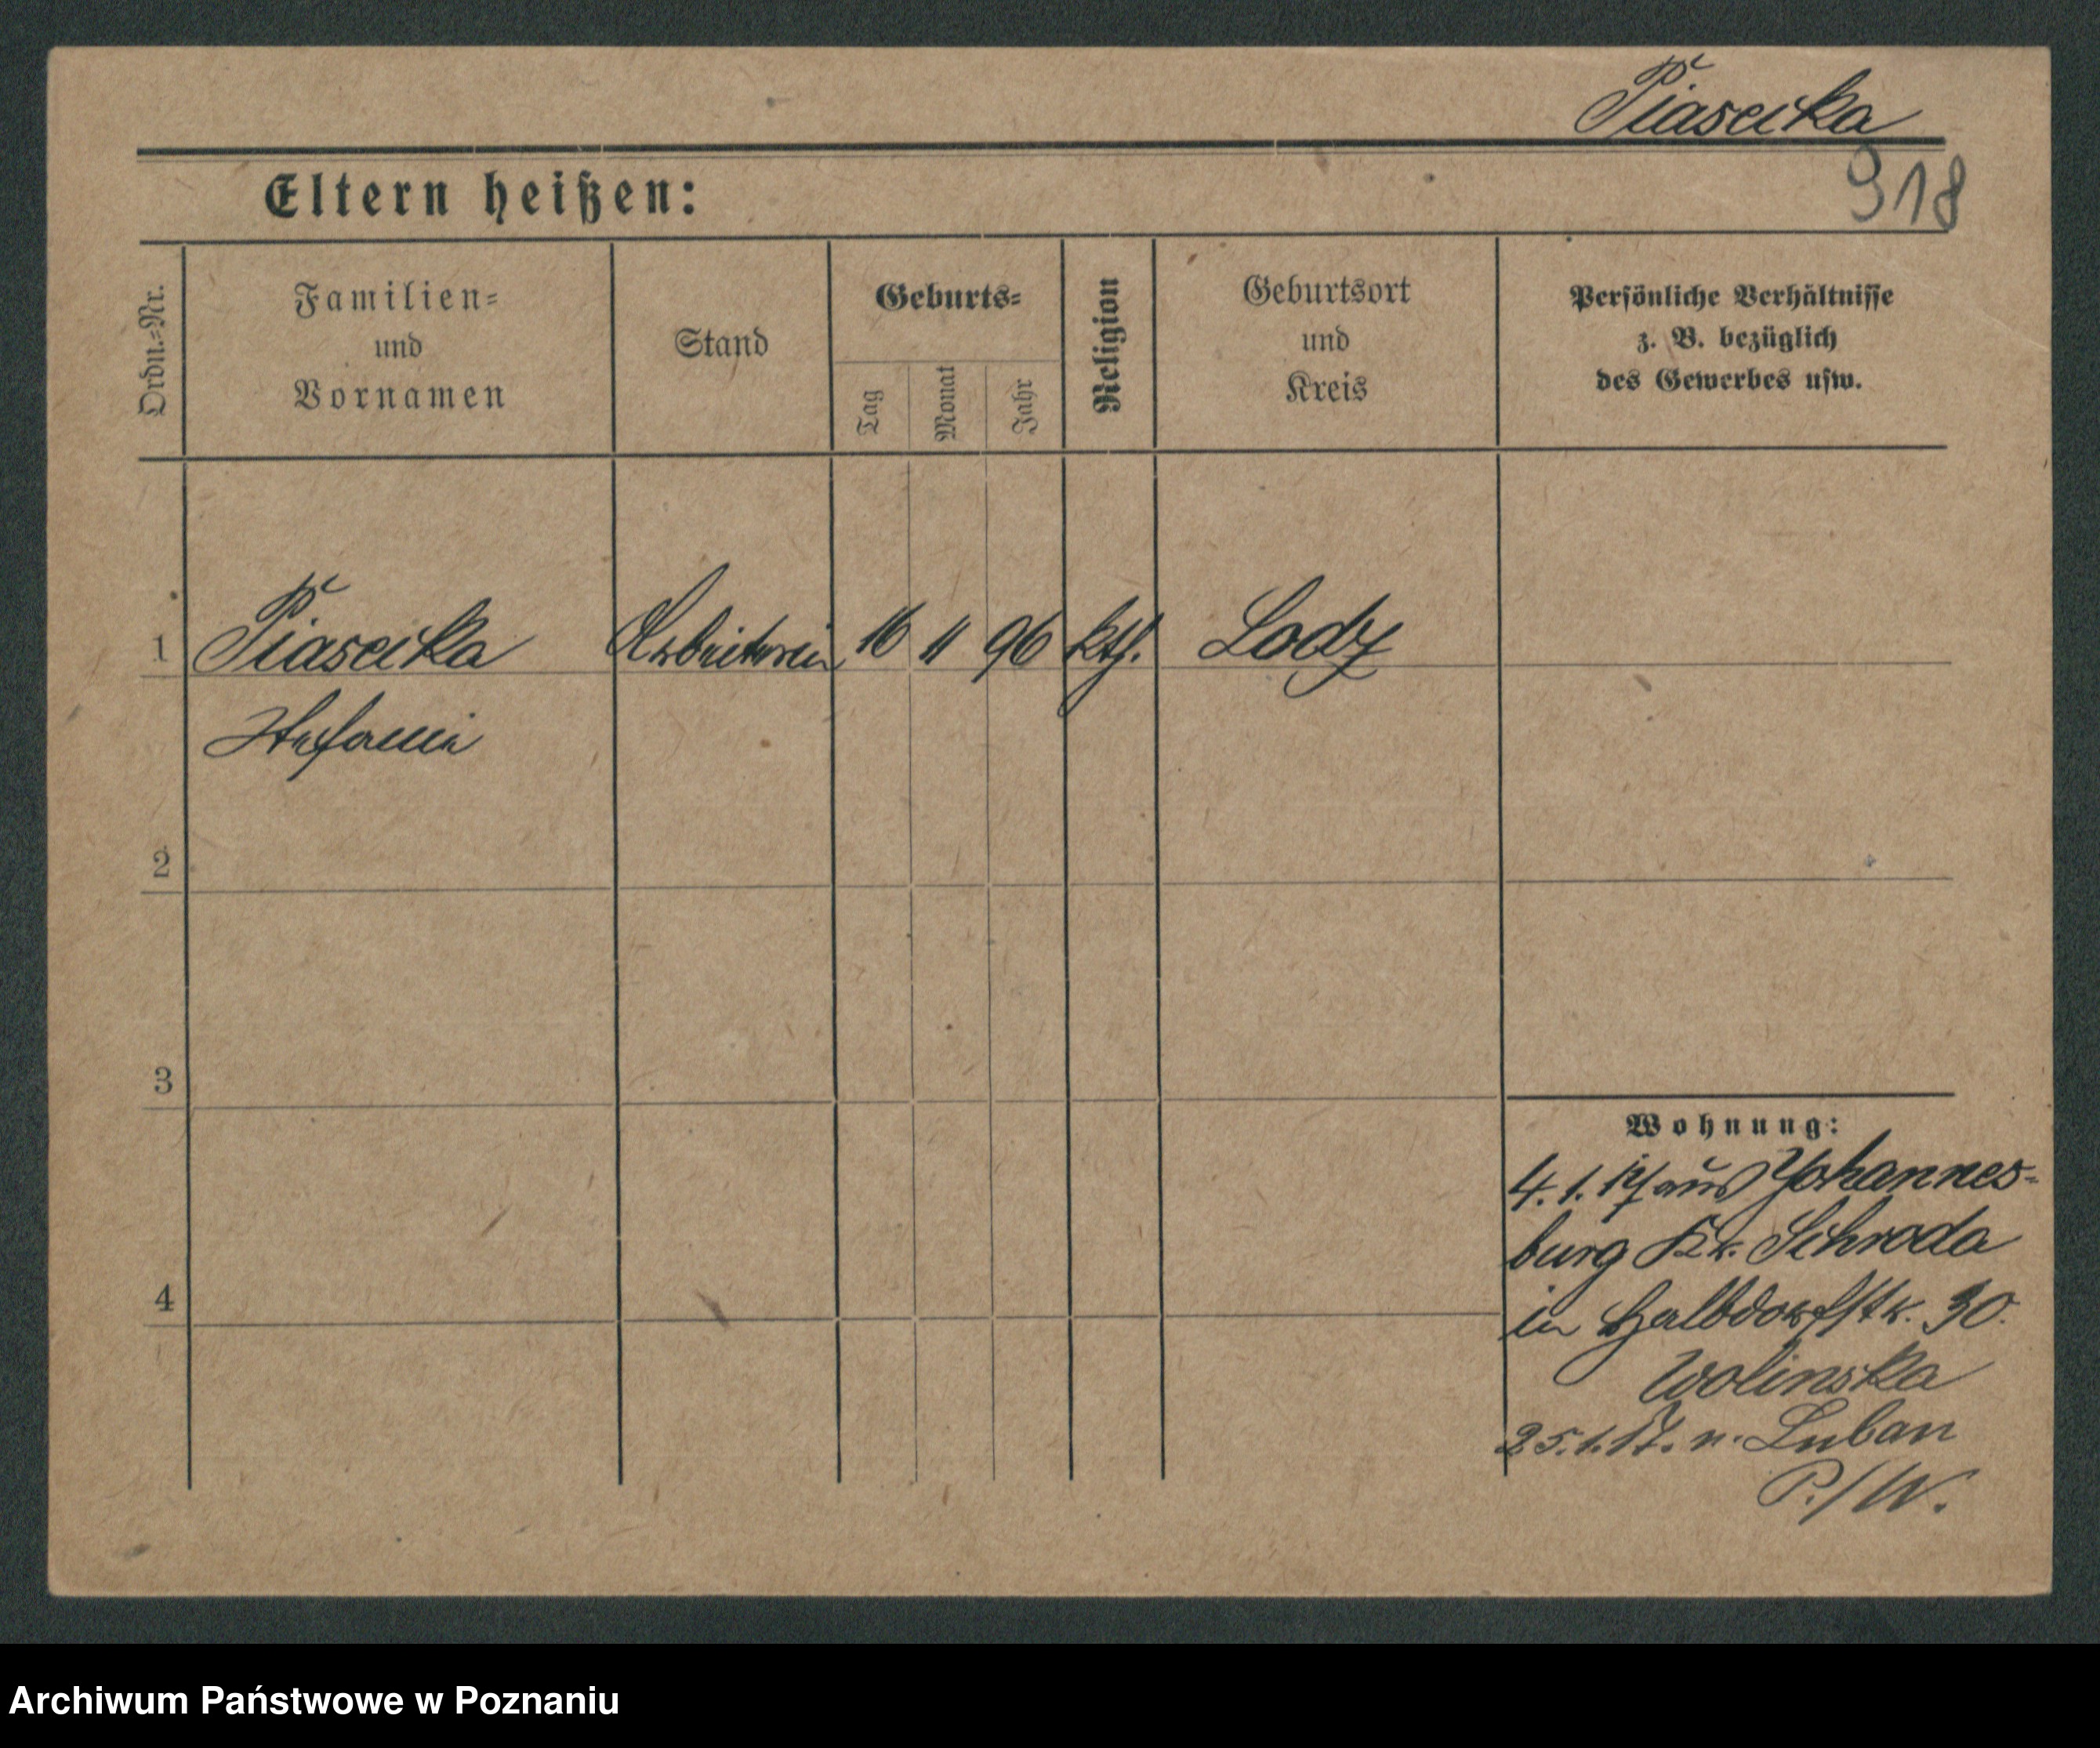 Piasecka
918
Eltern heißen:
Ordn.=Nr.
Familien=
und
Vornamen
Stand
Geburts=
Tag
Monat
Jahr
Religion
Geburtsort
und
Kreis
Persönliche Verhältnisse
z. B. bezüglich
des Gewerbes usw.
1 Piasecka Arbeiterin 16 11 96 kth. Lodz
Stefania
2
3
4
Wohnung:
4. 1. 17 aus Johannes-
burg Kr. Schroda
in Halbdorfstr. 30.
Wolinska
25.1.17. n. Luban
P./W.
Archiwum Państwowe w Poznaniu